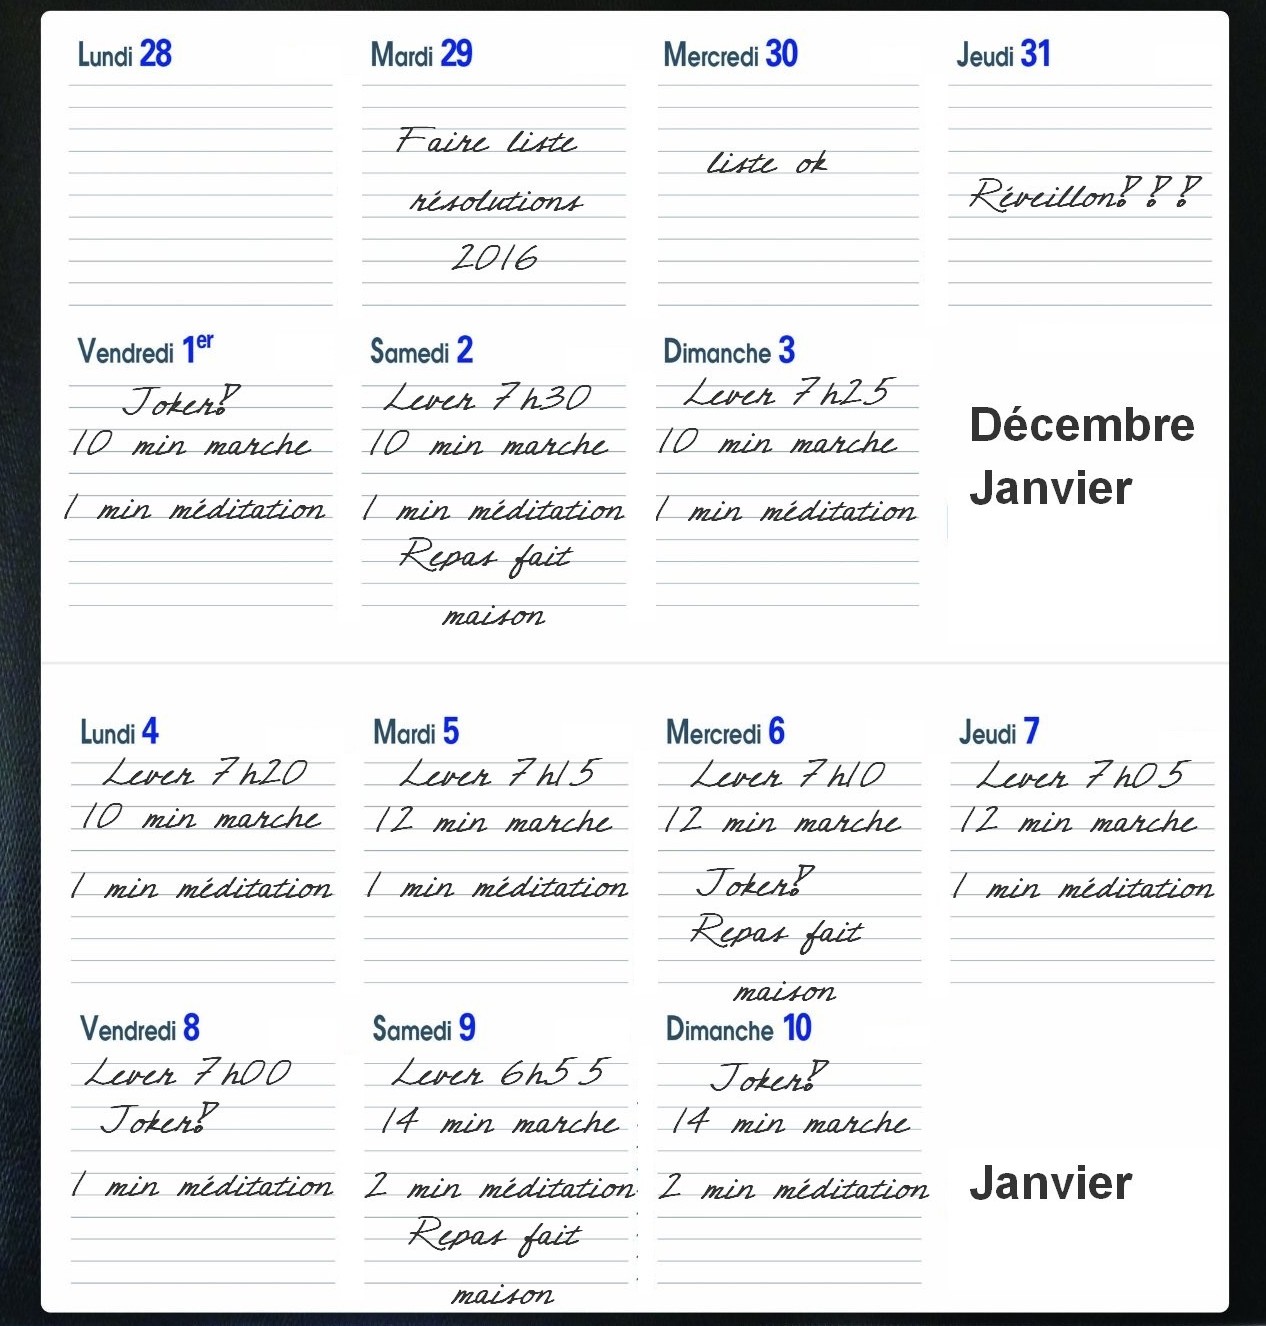 Lundi 28
Mardi 29
Faire liste
résolutions
2016
Mercredi 30
liste ok
Jeudi 31
Réveillon!!!
Vendredi 1er
Joker!
10 min marche
1 min méditation
Samedi 2
Lever 7h30
10 min marche
1 min méditation
Repas fait
maison
Dimanche 3
Lever 7h25
10 min marche
1 min méditation
Décembre
Janvier
Lundi 4
Lever 7h20
10 min marche
1 min méditation
Mardi 5
Lever 7h15
12 min marche
1 min méditation
Mercredi 6
Lever 7h10
12 min marche
Joker!
Repas fait
maison
Jeudi 7
Lever 7h05
12 min marche
1 min méditation
Vendredi 8
Lever 7h00
Joker!
1 min méditation
Samedi 9
Lever 6h55
14 min marche
2 min méditation
Repas fait
maison
Dimanche 10
Joker!
14 min marche
2 min méditation
Janvier